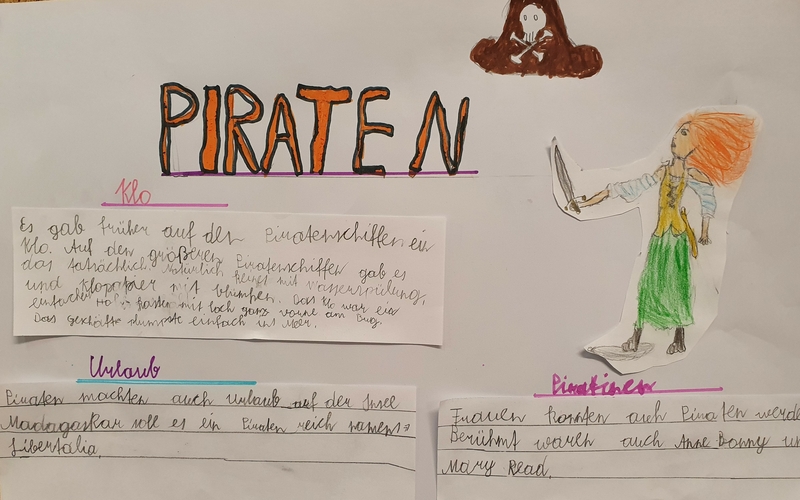 PIRATEN
Klo
Es gab früher auf den Piratenschiffen ein
Klo. Auf den größeren Piratenschiffen gab es
das tatsächlich. Natürlich keines mit Wasserspülung,
und Klopapier mit blümchen. Das Klo war ein
einfacher Holzkasten mit Loch ganz vorne am Bug.
Das geschäft plumste einfach ins Meer.
Urlaub
Piraten machten auch Urlaub auf der Insel
Madagaskar soll es ein Piraten reich namens
Libertalia.
Piratinen
Frauen konnten auch Piraten werde
Berühmt waren auch Anne Bonny un
Mary Read.